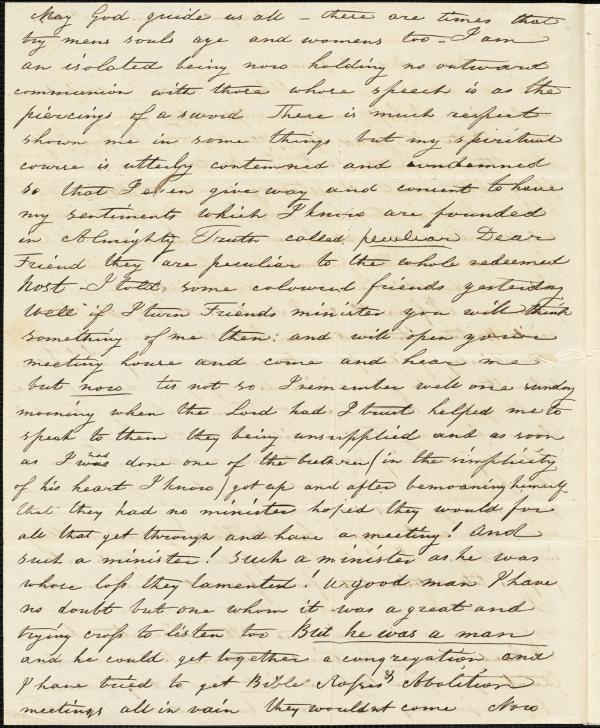 May God guide us all – there are times that
try mens souls aye and womens too – I am
an isolated being now holding no outward
communion with those whose speech is as the
piercings of a sword There is much respect
shown me in some things but my spiritual
course is utterly contemned and condemned
so that I even give way and consent to have
my sentiments which I know are founded
in Almighty Truth called peculiar Dear
Friend they are peculiar to the whole redeemed
host – I told some coloured friends yesterday
well if I turn Friends minister you will think
something of me then: and will open your
meeting house and come and hear me
but now tis not so I remember well one sunday
morning when the Lord had I trust helped me to
speak to them they being unsupplied and as soon
as I was had done one of the brethren (in the simplicity
of his heart I know) got up and after bemoaning himself
that they had no minister hoped they would for
all that get through and have a meeting! And
such a minister! Such a minister as he was
whose loss they lamented! a good man I have
no doubt but one whom it was a great and
trying cross to listen too But he was a man
and he could get together a congregation and
I have tried to get Bible & Abolition
meetings all in vain they wouldnt come Now